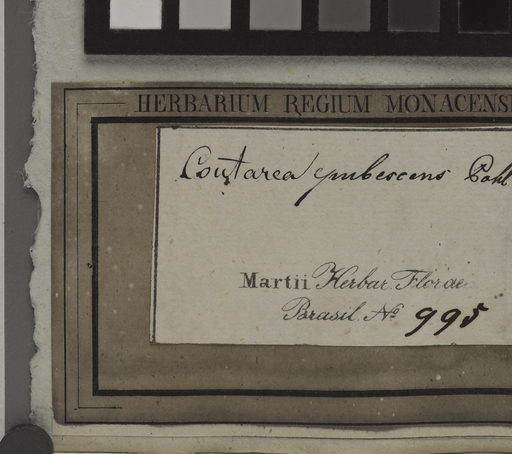 HERBARIUM REGIUM MONACENS
Coutarea pubescens Pohl
Martii Herbar. Florae
Brasil. No 995